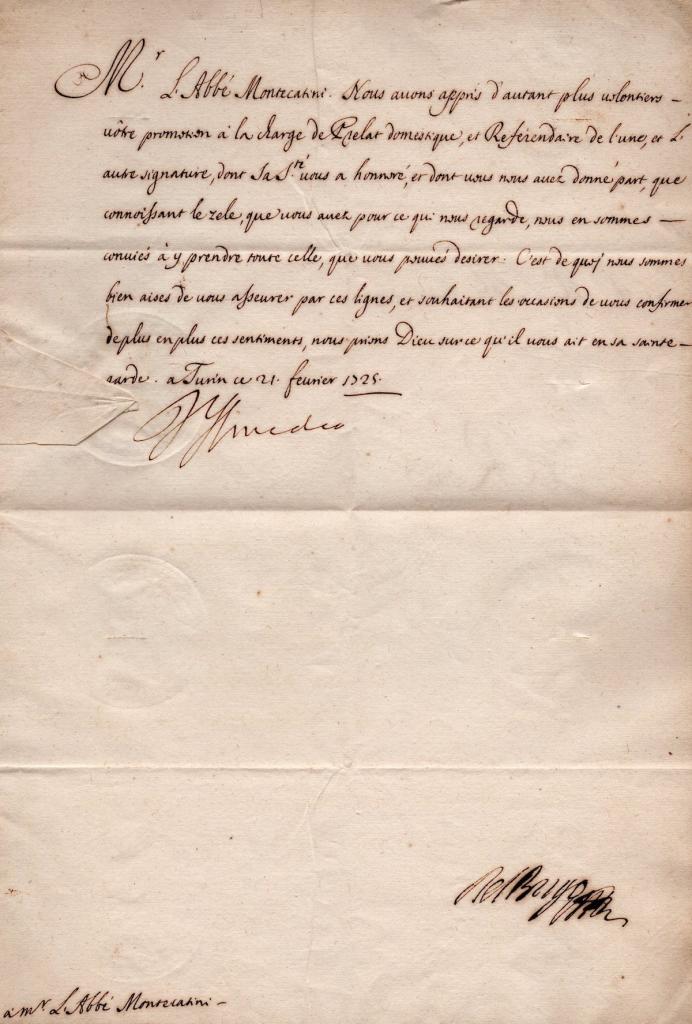 M.r L'Abbé Montecatini. Nous avons appris d'autant plus volontiers –
vôtre promotion à la charge de Prelat domestique, et Referendaire de l'une, et L'
autre signature, dont Sa S.té vous a honnoré, et dont vous nous avez donné part, que
connoissant le zele, que vous avez pour ce qui nous regarde, nous en sommes —
conviés à y prendre toute celle, que vous pouvés desirer. C'est de quoj nous sommes
bien aises de vous asseurer par ces lignes, et souhaitant les occasions de vous confirmer
de plus en plus ces sentiments, nous prions Dieu sur ce qu'il vous ait en sa sainte –
garde. a Turin ce 21. fevrier 1725.
V Amedeo
a m.r L'Abbé Montecatini –